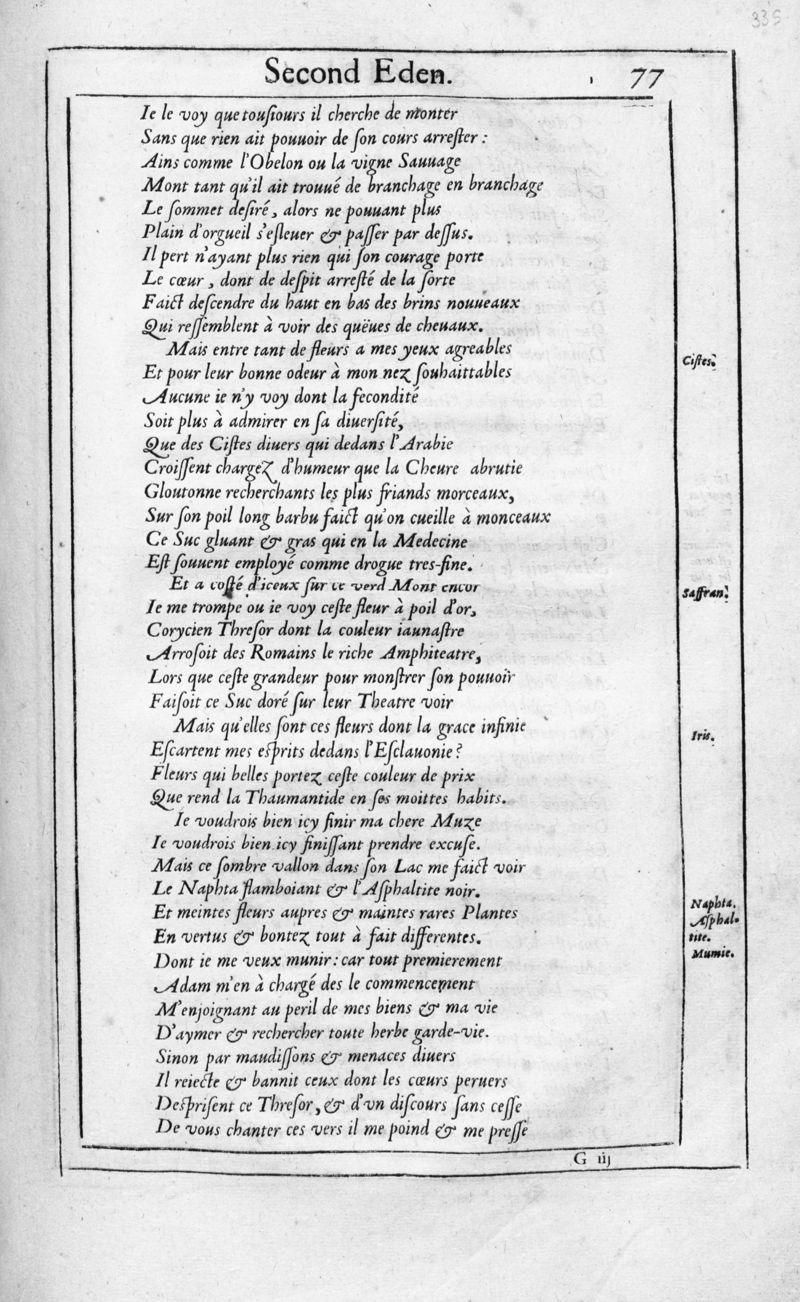 335
Second Eden. 77
Ie le voy que touſiours il cherche de monter
Sans que rien ait pouuoir de ſon cours arreſter :
Ains comme l'Obelon ou la vigne Sauuage
Mont tant qu'il ait trouué de branchage en branchage
Le ſommet deſiré, alors ne pouuant plus
Plain d'orgueil s'eſleuer & paſſer par deſſus.
Il pert n'ayant plus rien qui ſon courage porte
Le cœur, dont de deſpit arreſté de la ſorte
Faict deſcendre du haut en bas des brins nouueaux
Qui reſſemblent à voir des quëues de cheuaux.
Mais entre tant de fleurs a mes yeux agreables
Ciſtes.
Et pour leur bonne odeur à mon nez ſouhaittables
Aucune ie n'y voy dont la fecondité
Soit plus à admirer en ſa diuerſité,
Que des Ciſtes diuers qui dedans l'Arabie
Croiſſent chargez d'humeur que la Cheure abrutie
Gloutonne recherchants les plus friands morceaux,
Sur ſon poil long barbu faict qu'on cueille à monceaux
Ce Suc gluant & gras qui en la Medecine
Eſt ſouuent employé comme drogue tres-fine.
Et a coſté d'iceux ſur ce verd Mont encor
Saffran.
Ie me trompe ou ie voy ceſte fleur à poil d'or,
Corycien Threſor dont la couleur iaunaſtre
Arroſoit des Romains le riche Amphiteatre,
Lors que ceſte grandeur pour monſtrer ſon pouuoir
Faiſoit ce Suc doré ſur leur Theatre voir
Mais qu'elles ſont ces fleurs dont la grace infinie
Iris.
Eſcartent mes eſprits dedans l'Eſclauonie ?
Fleurs qui belles portez ceſte couleur de prix
Que rend la Thaumantide en ſes moittes habits.
Ie voudrois bien icy finir ma chere Muze
Ie voudrois bien icy finiſſant prendre excuſe.
Mais ce ſombre vallon dans ſon Lac me faict voir
Le Naphta flamboiant & l'Aſphaltite noir.
Naphta.
Et meintes fleurs aupres & maintes rares Plantes
Aſphal-
En vertus & bontez tout à fait differentes.
tite.
Mumie.
Dont ie me veux munir : car tout premierement
Adam m'en à chargé des le commencement
M'enjoignant au peril de mes biens & ma vie
D'aymer & rechercher toute herbe garde-vie.
Sinon par maudiſſons & menaces diuers
Il reiecte & bannit ceux dont les cœurs peruers
Deſpriſent ce Threſor, & d'vn diſcours ſans ceſſe
De vous chanter ces vers il me poind & me preſſe
G iij